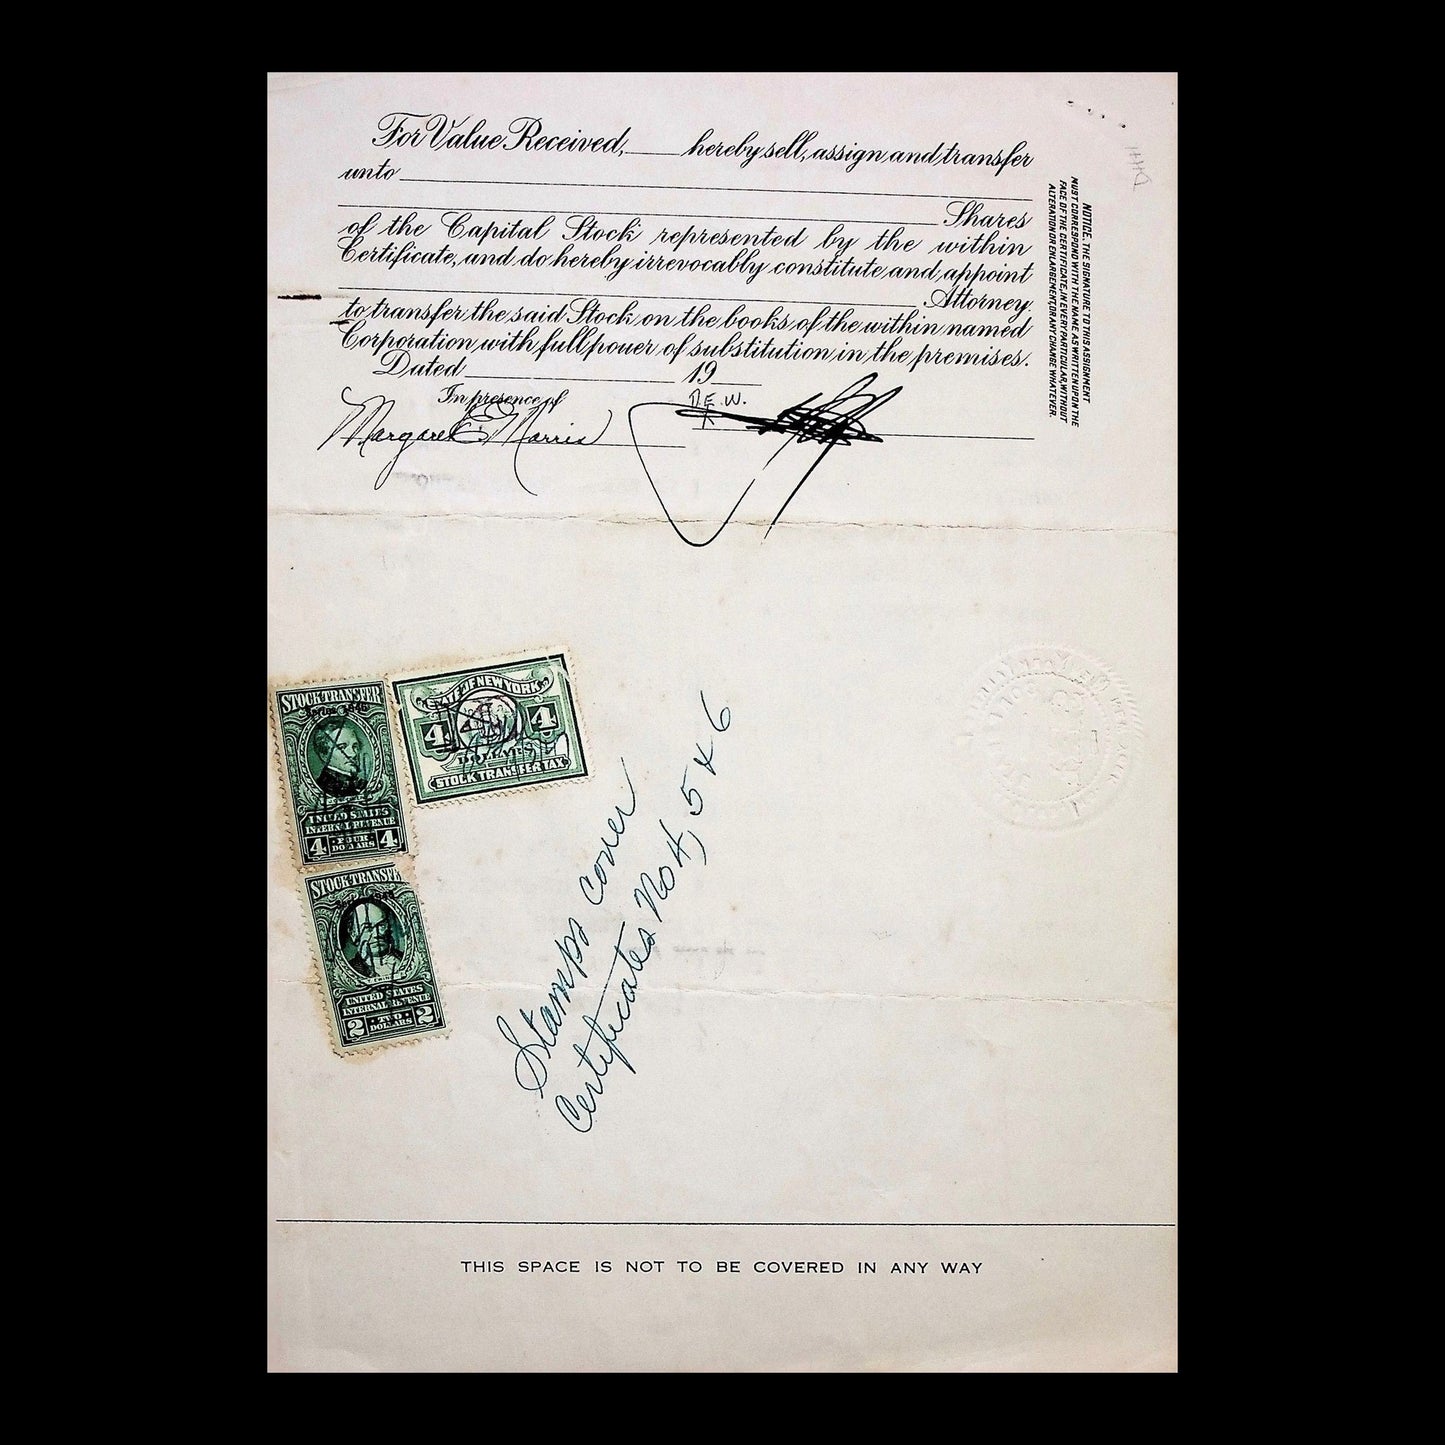 For Value Received, ____ hereby sell, assign and transfer
unto
Shares
of the Capital Stock represented by the within
Certificate, and do hereby irrevocably constitute and appoint
Attorney
to transfer the said Stock on the books of the within named
Corporation with full power of substitution in the premises.
Dated ____ 19__
In presence of
D.E.W.
Margaret E. Morris
NOTICE. THE SIGNATURE TO THIS ASSIGNMENT
MUST CORRESPOND WITH THE NAME AS WRITTEN UPON THE
FACE OF THE CERTIFICATE, IN EVERY PARTICULAR, WITHOUT
ALTERATION OR ENLARGEMENT, OR ANY CHANGE WHATEVER.
STOCK TRANSFER
UNITED STATES
INTERNAL REVENUE
4 FOUR DOLLARS 4
STATE OF NEW YORK
4 4
DOLLARS
STOCK TRANSFER TAX
STOCK TRANSFER
UNITED STATES
INTERNAL REVENUE
2 TWO DOLLARS 2
Stamps cover
Certificates No 4, 5 & 6
THIS SPACE IS NOT TO BE COVERED IN ANY WAY